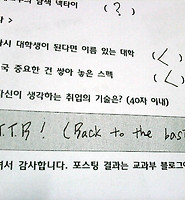 남색 넥타이 ( ? )
>
다시 대학생이 된다면 이름 있는 대학 (
국 중요한 건 쌓아 놓은 스펙 (
자신이 생각하는 취업의 기술은? (40자 이내)
T.T.B! (Back to the bas
셔서 감사합니다. 포스팅 결과는 교과부 블로그에